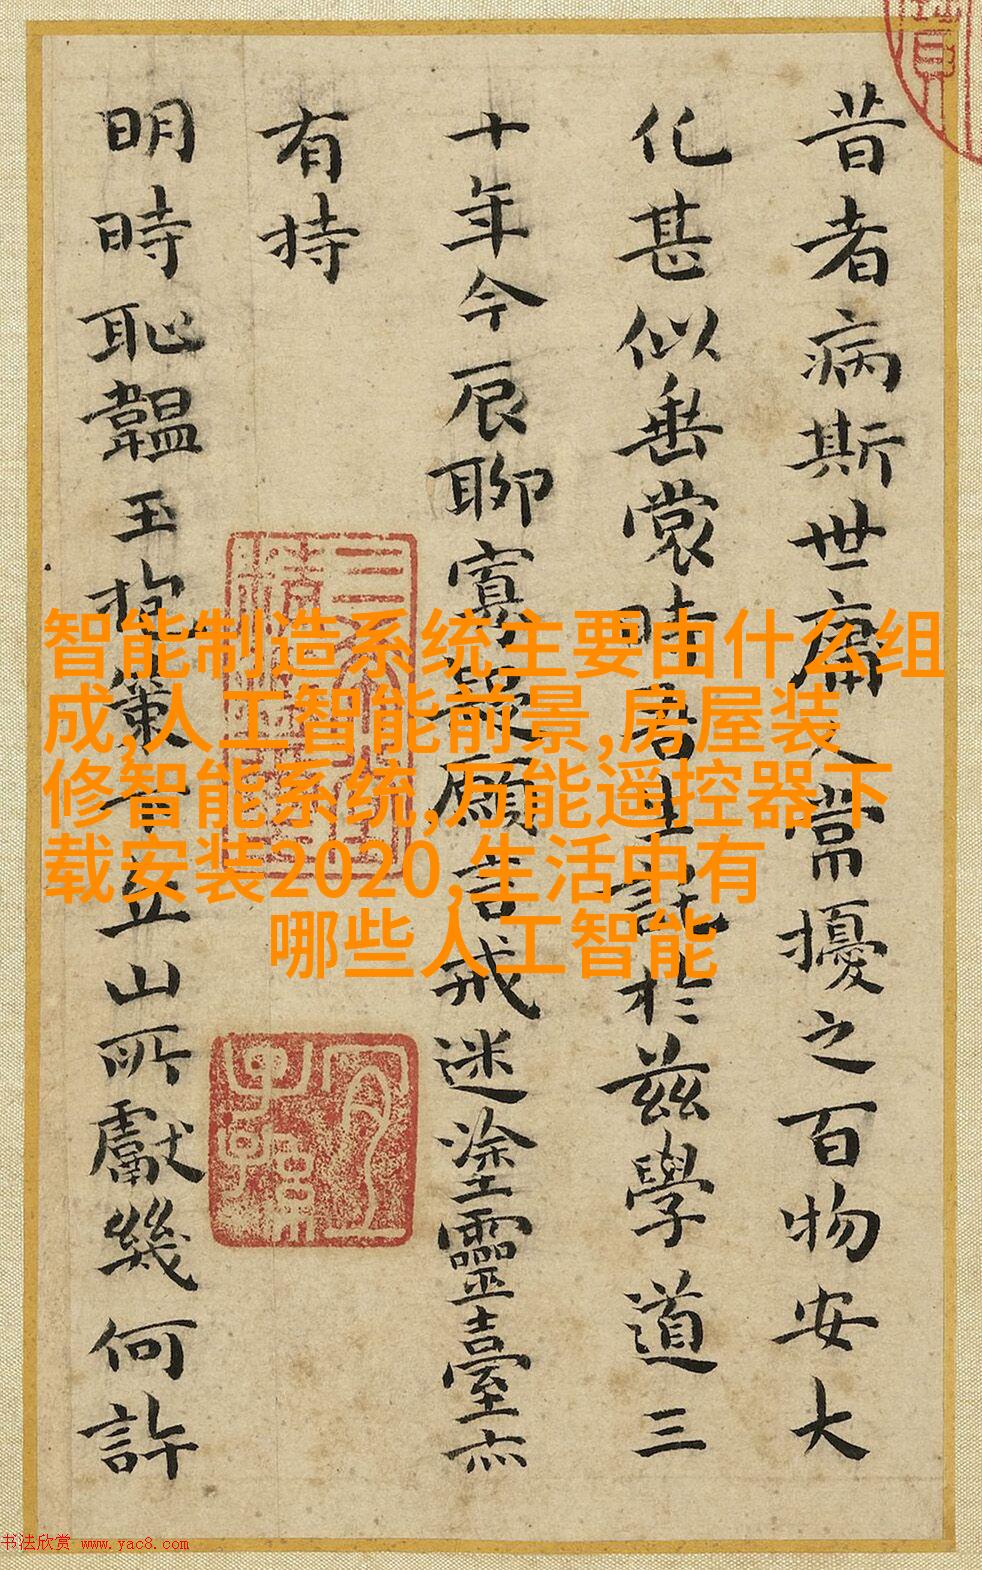 昔者病斯世庸人常擾之百物安大
化甚似垂裳時居生託於茲學道三
十年今辰聊寡疑願言戒迷塗靈臺亦
有持
明時恥韞玉抱策干立山所獻幾何許
智能制造系统主要由什么组
成,人工智能前景,房屋装
修智能系统,万能遥控器下
载安装2020,生活中有
哪些人工智能
书法欣赏 www.yac8.com